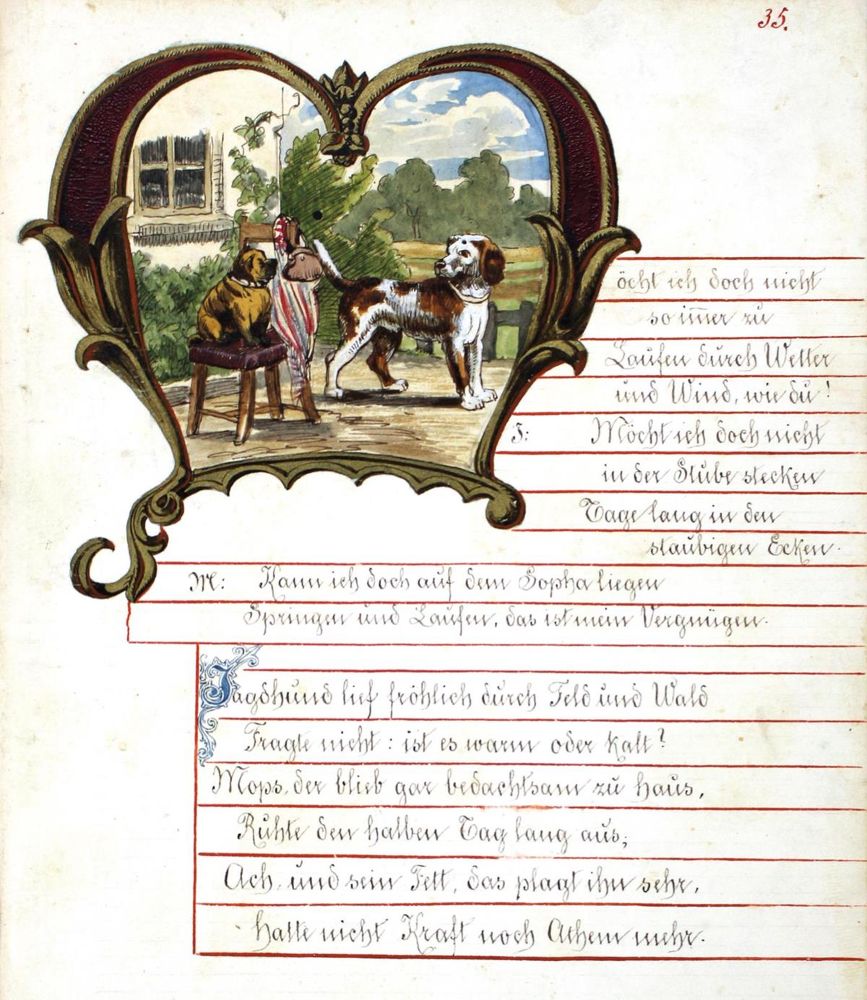 35.
Möcht ich doch nicht
so im̅er zu
Laufen durch Wetter
und Wind, wie du!
J: Möcht ich doch nicht
in der Stube stecken
Tage lang in den
staubigen Ecken.
M: Kann ich doch auf dem Sopha liegen
Springen und Laufen, das ist mein Vergnügen.
Jagdhund lief fröhlich durch Feld und Wald
Fragte nicht: ist es warm oder kalt?
Mops, der blieb gar bedachtsam zu Haus,
Ruhte den halben Tag lang aus;
Ach, und sein Fett, das plagt ihn sehr,
hatte nicht Kraft noch Athem mehr.